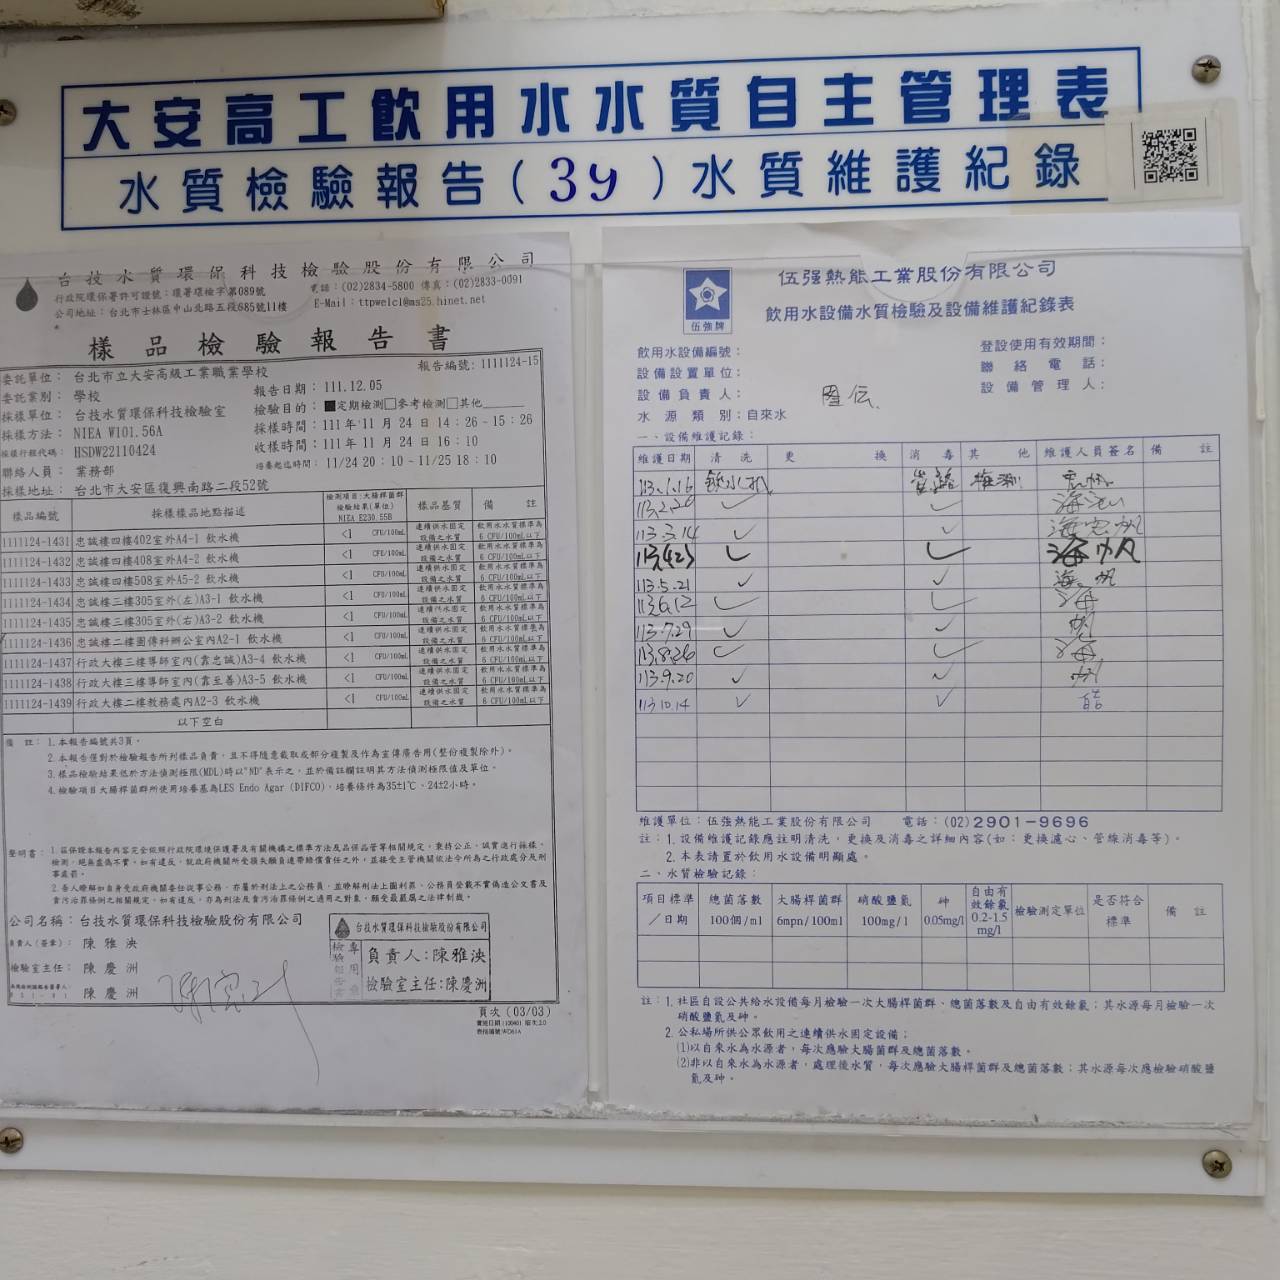 大安高工飲用水水質自主管理表
水質檢驗報告(3y)水質維護紀錄
台技水質環保科技檢驗股份有限公司
行政院環保署許可證號：環署環檢字第089號
電話：(02)2834-5800 傳真：(02)2833-0091
公司地址：台北市士林區中山北路五段685號11樓
E-Mail：ttpwelcl@ms25.hinet.net
樣品檢驗報告書
報告編號：1111124-15
委託單位：台北市立大安高級工業職業學校
委託業別：學校
報告日期：111.12.05
採樣單位：台技水質環保科技檢驗室
檢驗目的：■定期檢測□參考檢測□其他
採樣方法：NIEA W101.56A
採樣時間：111年11月24日14:26-15:26
採樣行程代碼：HSDW22110424
收樣時間：111年11月24日16:10
聯絡人員：業務部
培養起迄時間：11/24 20:10~11/25 18:10
採樣地址：台北市大安區復興南路二段52號
樣品編號 採樣樣品地點描述 檢測項目:大腸桿菌群 檢驗結果(單位) NIEA E230.55B 樣品基質 備註
1111124-1431 忠誠樓四樓402室外A4-1 飲水機 <1 CFU/100mL 連續供水固定設備之水質 飲用水水質標準為6 CFU/100mL以下
1111124-1432 忠誠樓四樓408室外A4-2 飲水機 <1 CFU/100mL 連續供水固定設備之水質 飲用水水質標準為6 CFU/100mL以下
1111124-1433 忠誠樓四樓508室外A5-2 飲水機 <1 CFU/100mL 連續供水固定設備之水質 飲用水水質標準為6 CFU/100mL以下
1111124-1434 忠誠樓三樓305室外(左)A3-1 飲水機 <1 CFU/100mL 連續供水固定設備之水質 飲用水水質標準為6 CFU/100mL以下
1111124-1435 忠誠樓三樓305室外(右)A3-2 飲水機 <1 CFU/100mL 連續供水固定設備之水質 飲用水水質標準為6 CFU/100mL以下
1111124-1436 忠誠樓二樓圖傳科辦公室內A2-1 飲水機 <1 CFU/100mL 連續供水固定設備之水質 飲用水水質標準為6 CFU/100mL以下
1111124-1437 行政大樓三樓導師室內(靠忠誠)A3-4 飲水機 <1 CFU/100mL 連續供水固定設備之水質 飲用水水質標準為6 CFU/100mL以下
1111124-1438 行政大樓三樓導師室內(靠至善)A3-5 飲水機 <1 CFU/100mL 連續供水固定設備之水質 飲用水水質標準為6 CFU/100mL以下
1111124-1439 行政大樓二樓教務處內A2-3 飲水機 <1 CFU/100mL 連續供水固定設備之水質 飲用水水質標準為6 CFU/100mL以下
以下空白
備 註：1.本報告編號共3頁。
2.本報告僅對於檢驗報告所列樣品負責，且不得隨意截取或部分複製及作為宣傳廣告用(整份複製除外)。
3.樣品檢驗結果低於方法偵測極限(MDL)時以"ND"表示之，並於備註欄註明其方法偵測極限值及單位。
4.檢驗項目大腸桿菌群所使用培養基為LES Endo Agar (DIFCO)，培養條件為35±1℃、24±2小時。
聲明書：1.茲保證本報告內容完全依照行政院環境保護署及有關機構之標準方法及品保品管等相關規定，秉持公正、誠實進行採樣、
檢測，絕無虛偽不實。如有違反，就政府機關所受損失願負連帶賠償責任之外，並接受主管機關依法令所為之行政處分及刑
事處罰。
2.吾人瞭解如自身受政府機關委任從事公務，亦屬於刑法上之公務員，並瞭解刑法上圖利罪、公務員登載不實偽造公文書及
貪污治罪條例之相關規定。如有違反，亦為刑法及貪污治罪條例之適用之對象，願受最嚴厲之法律制裁。
公司名稱：台技水質環保科技檢驗股份有限公司
負責人(簽章)：陳雅泱
檢驗室主任：陳慶洲
陳慶洲
台技水質環保科技檢驗股份有限公司
檢驗報告書專用章
負責人:陳雅泱
檢驗室主任:陳慶洲
頁次(03/03)
伍強牌
伍强熱能工業股份有限公司
飲用水設備水質檢驗及設備維護紀錄表
飲用水設備編號：
登設使用有效期間：
設備設置單位：
聯絡電話：
設備負責人：
設備管理人：
水源類別：自來水
一、設備維護記錄：
維護日期 清洗 更換 消毒 其他 維護人員簽名 備註
113.1.16
113.2.26 ✓ ✓
113.3.14 ✓ ✓
113.4.23 ✓ ✓ 海帆
113.5.21 ✓ ✓ 海帆
113.6.12 ✓ ✓ 海
113.7.29 ✓ ✓ 帆
113.8.26 ✓ ✓ 海
113.9.20 ✓ ✓ 帆
113.10.14 ✓ ✓
維護單位：伍強熱能工業股份有限公司 電話：(02)2901-9696
註：1.設備維護記錄應註明清洗、更換及消毒之詳細內容(如：更換濾心、管線消毒等)。
2.本表請置於飲用水設備明顯處。
二、水質檢驗記錄：
項目標準/日期 總菌落數100個/ml 大腸桿菌群6mpn/100ml 硝酸鹽氮100mg/l 砷0.05mg/l 自由有效餘氯0.2-1.5mg/l 檢驗測定單位 是否符合標準 備註
註：1.社區自設公共給水設備每月檢驗一次大腸桿菌群、總菌落數及自由有效餘氯；其水源每月檢驗一次
硝酸鹽氮及砷。
2.公私場所供公眾飲用之連續供水固定設備：
(1)以自來水為水源者，每次應驗大腸菌群及總菌落數。
(2)非以自來水為水源者，處理後水質，每次應驗大腸桿菌群及總菌落數；其水源每次應檢驗硝酸鹽
氮及砷。